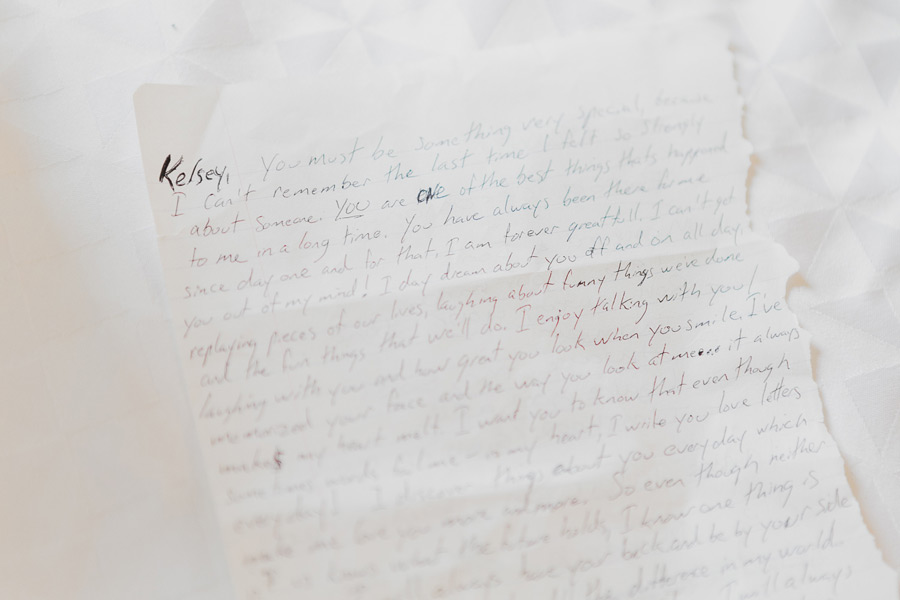 Kelsey, You must be something very special, because
I can't remember the last time I felt so strongly
about someone. You are ONE of the best things thats happened
to me in a long time. You have always been there for me
since day one and for that, I am forever greatfull. I can't get
you out of my mind! I day dream about you off and on all day,
replaying pieces of our lives, laughing about funny things we've done
and the fun things that we'll do. I enjoy talking with you/
laughing with you and how great you look when you smile. I've
memorized your face and the way you look at me it always
makes my heart melt. I want you to know that even though
sometimes in my heart, I write you love letters
everyday! I discover things about you everyday which
make me love you more and more. So even though neither
of us knows what the future holds, I know one thing is
always have your back and be by your side
the difference in my world.
I will always